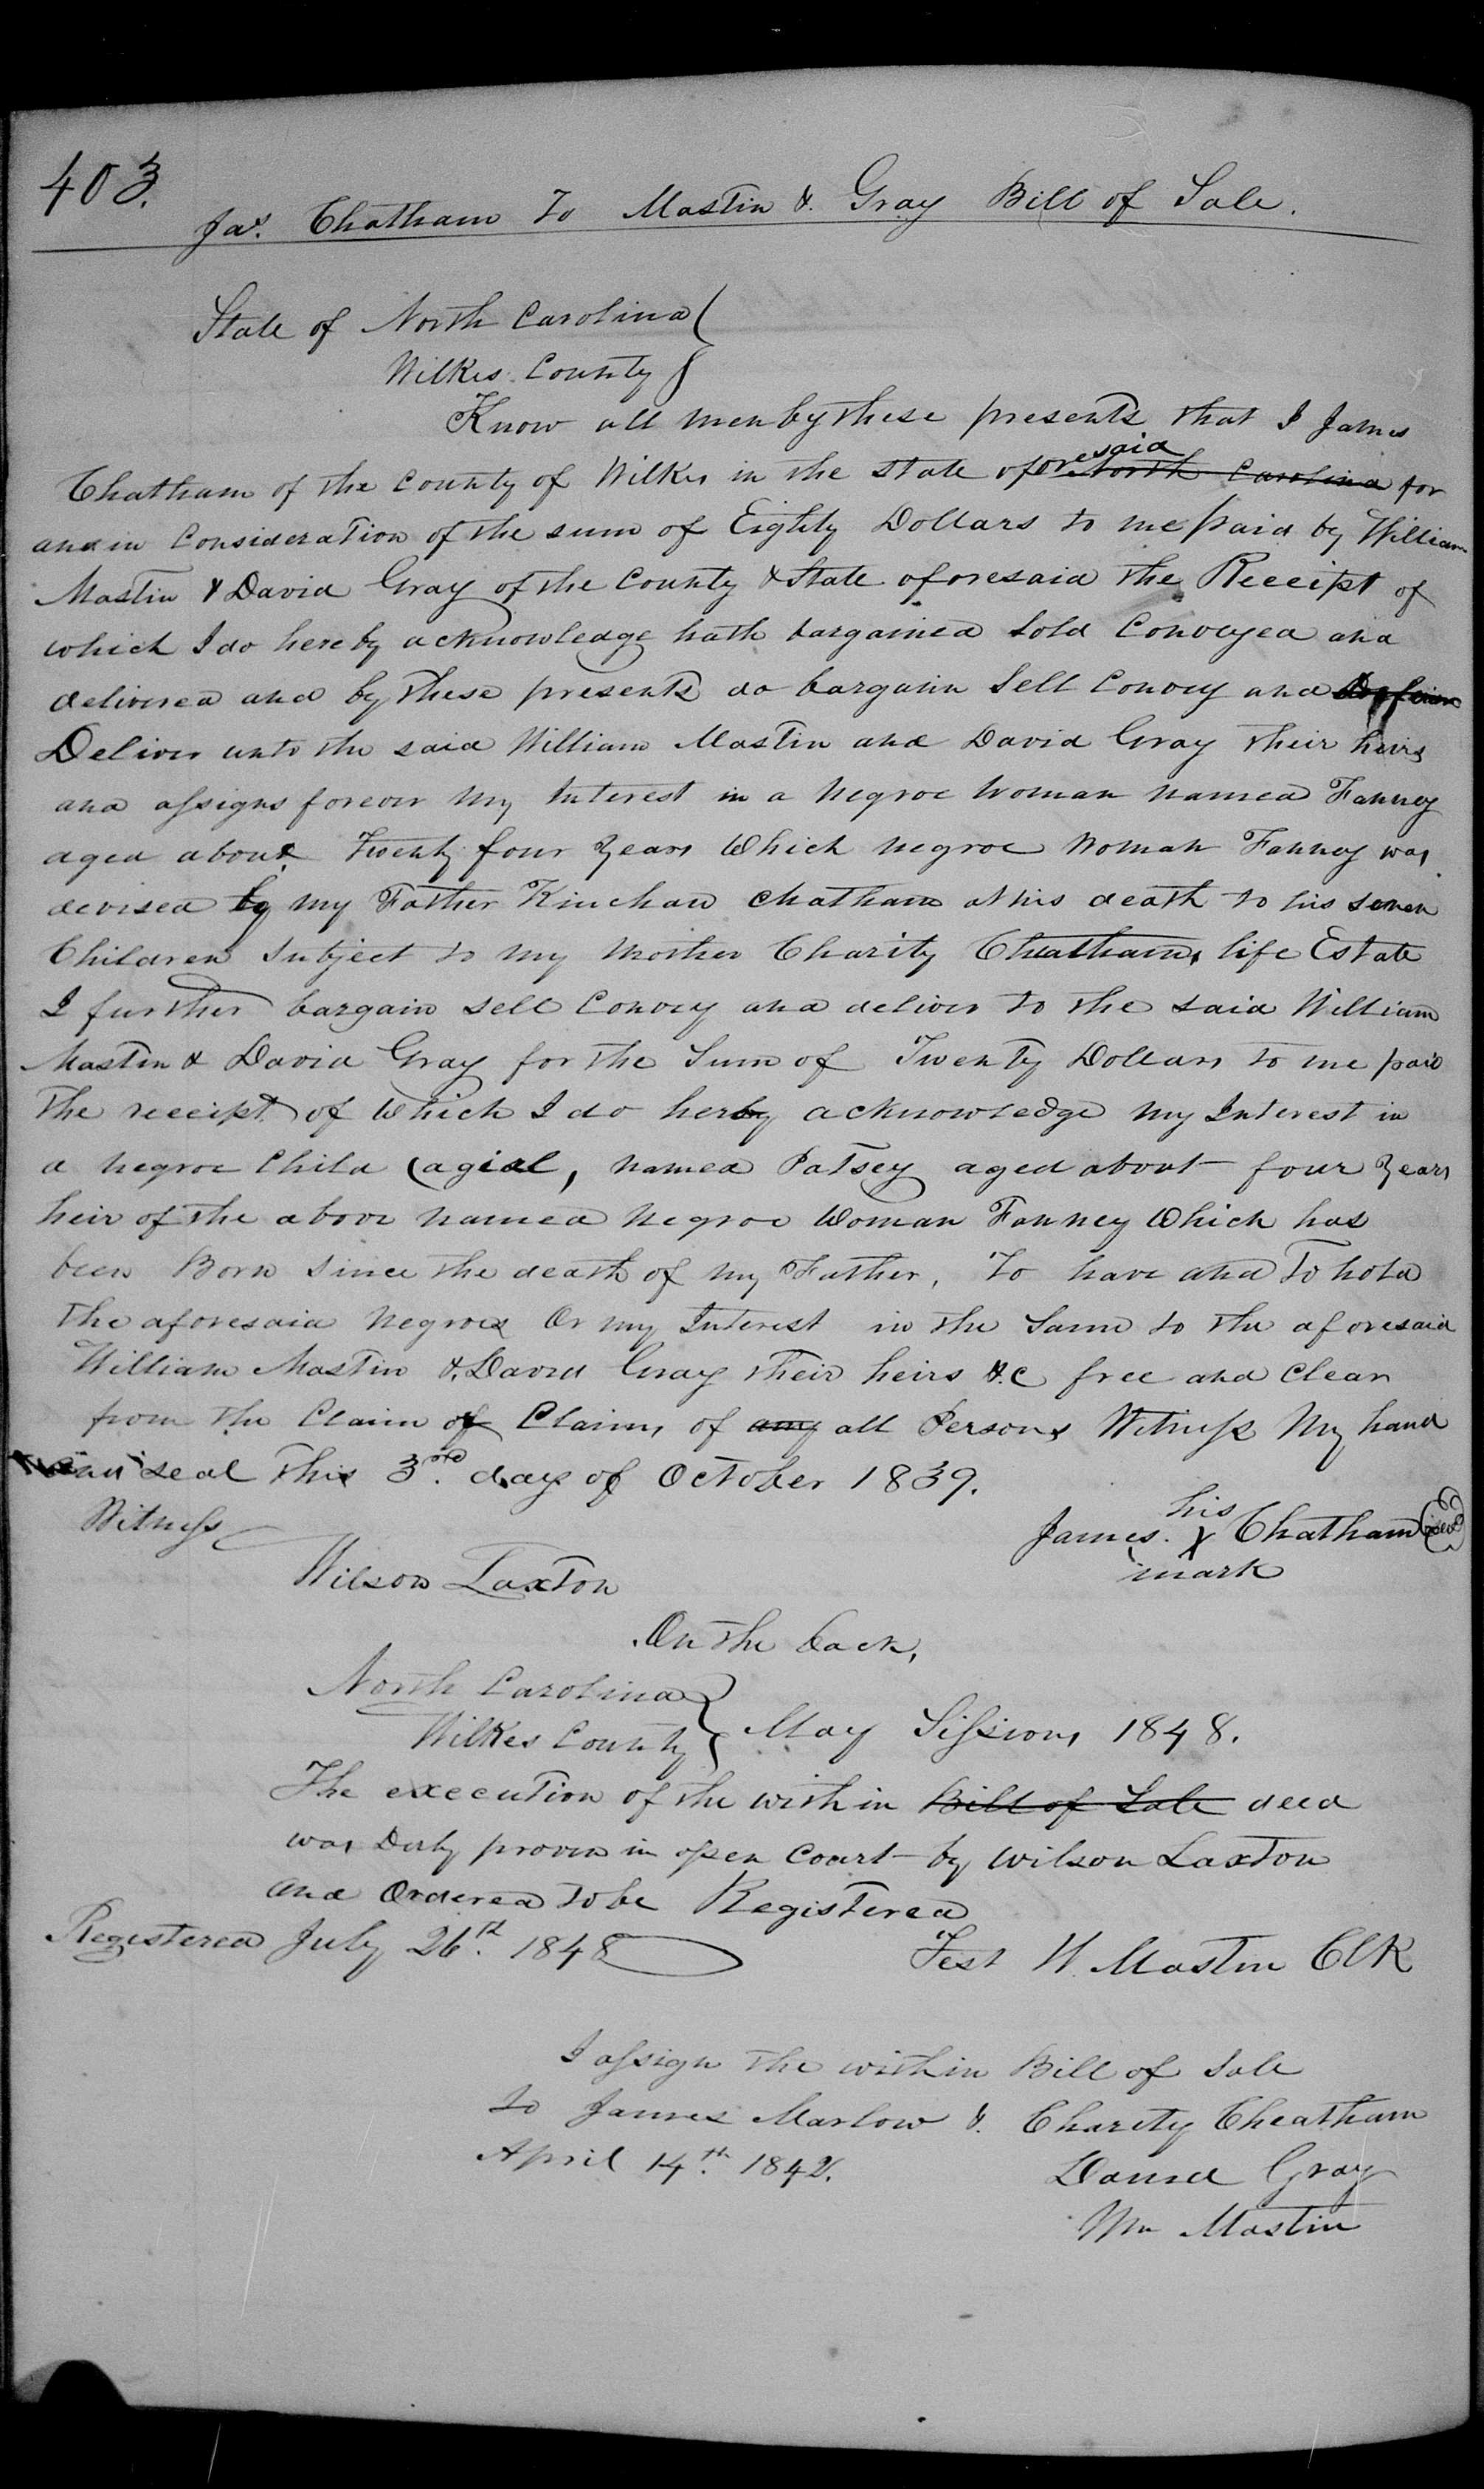 403.
Jas. Chatham To Mastin & Gray Bill of Sale.
State of North Carolina
Wilkes County
Know all men by these presents that I James
Chatham of the County of Wilkes in the State aforesaid North Carolina for
and in Consideration of the sum of Eighty Dollars to me paid by William
Mastin & David Gray of the County & State aforesaid the Receipt of
which I do hereby acknowledge hath bargained Sold Conveyed and
delivered and by these presents do bargain Sell Convey and
Deliver unto the said William Mastin and David Gray their heirs
and assigns forever my Interest in a negroe Woman named Fanney
aged about Twenty four years Which negroe Woman Fanney was
devised by my Father Kinchan Chatham at his death to his seven
Children Subject to my Mother Charity Cheathams life Estate
I further bargain sell Convey and deliver to the said William
Mastin & David Gray for the Sum of Twenty Dollars to me paid
the receipt of Which I do herby acknowledge my Interest in
a negroe Child (a girl, named Patsey aged about four years
heir of the above named negroe Woman Fanney Which has
been Born Since the death of my Father, To have and To hold
the aforesaid negroes Or my Interest in the Same to the aforesaid
William Mastin & David Gray their heirs &c free and Clear
from the Claim of Claims of any all Persons Witness My hand
and seal this 3rd. day of October 1839.
Witness
his
James. X Chatham (seal)
mark
Wilson Laxton
On the back,
North Carolina
Wilkes County } May Sissions 1848.
The execution of the within Bill of Sale deed
was Duly proven in open Court by Wilson Laxton
and Ordered to be Registered
Registered July 26th. 1848
Test W. Mastin Clk
I assign the within Bill of Sale
to James Marlow & Charity Cheatham
April 14th. 1842.
David Gray
Wm Mastin